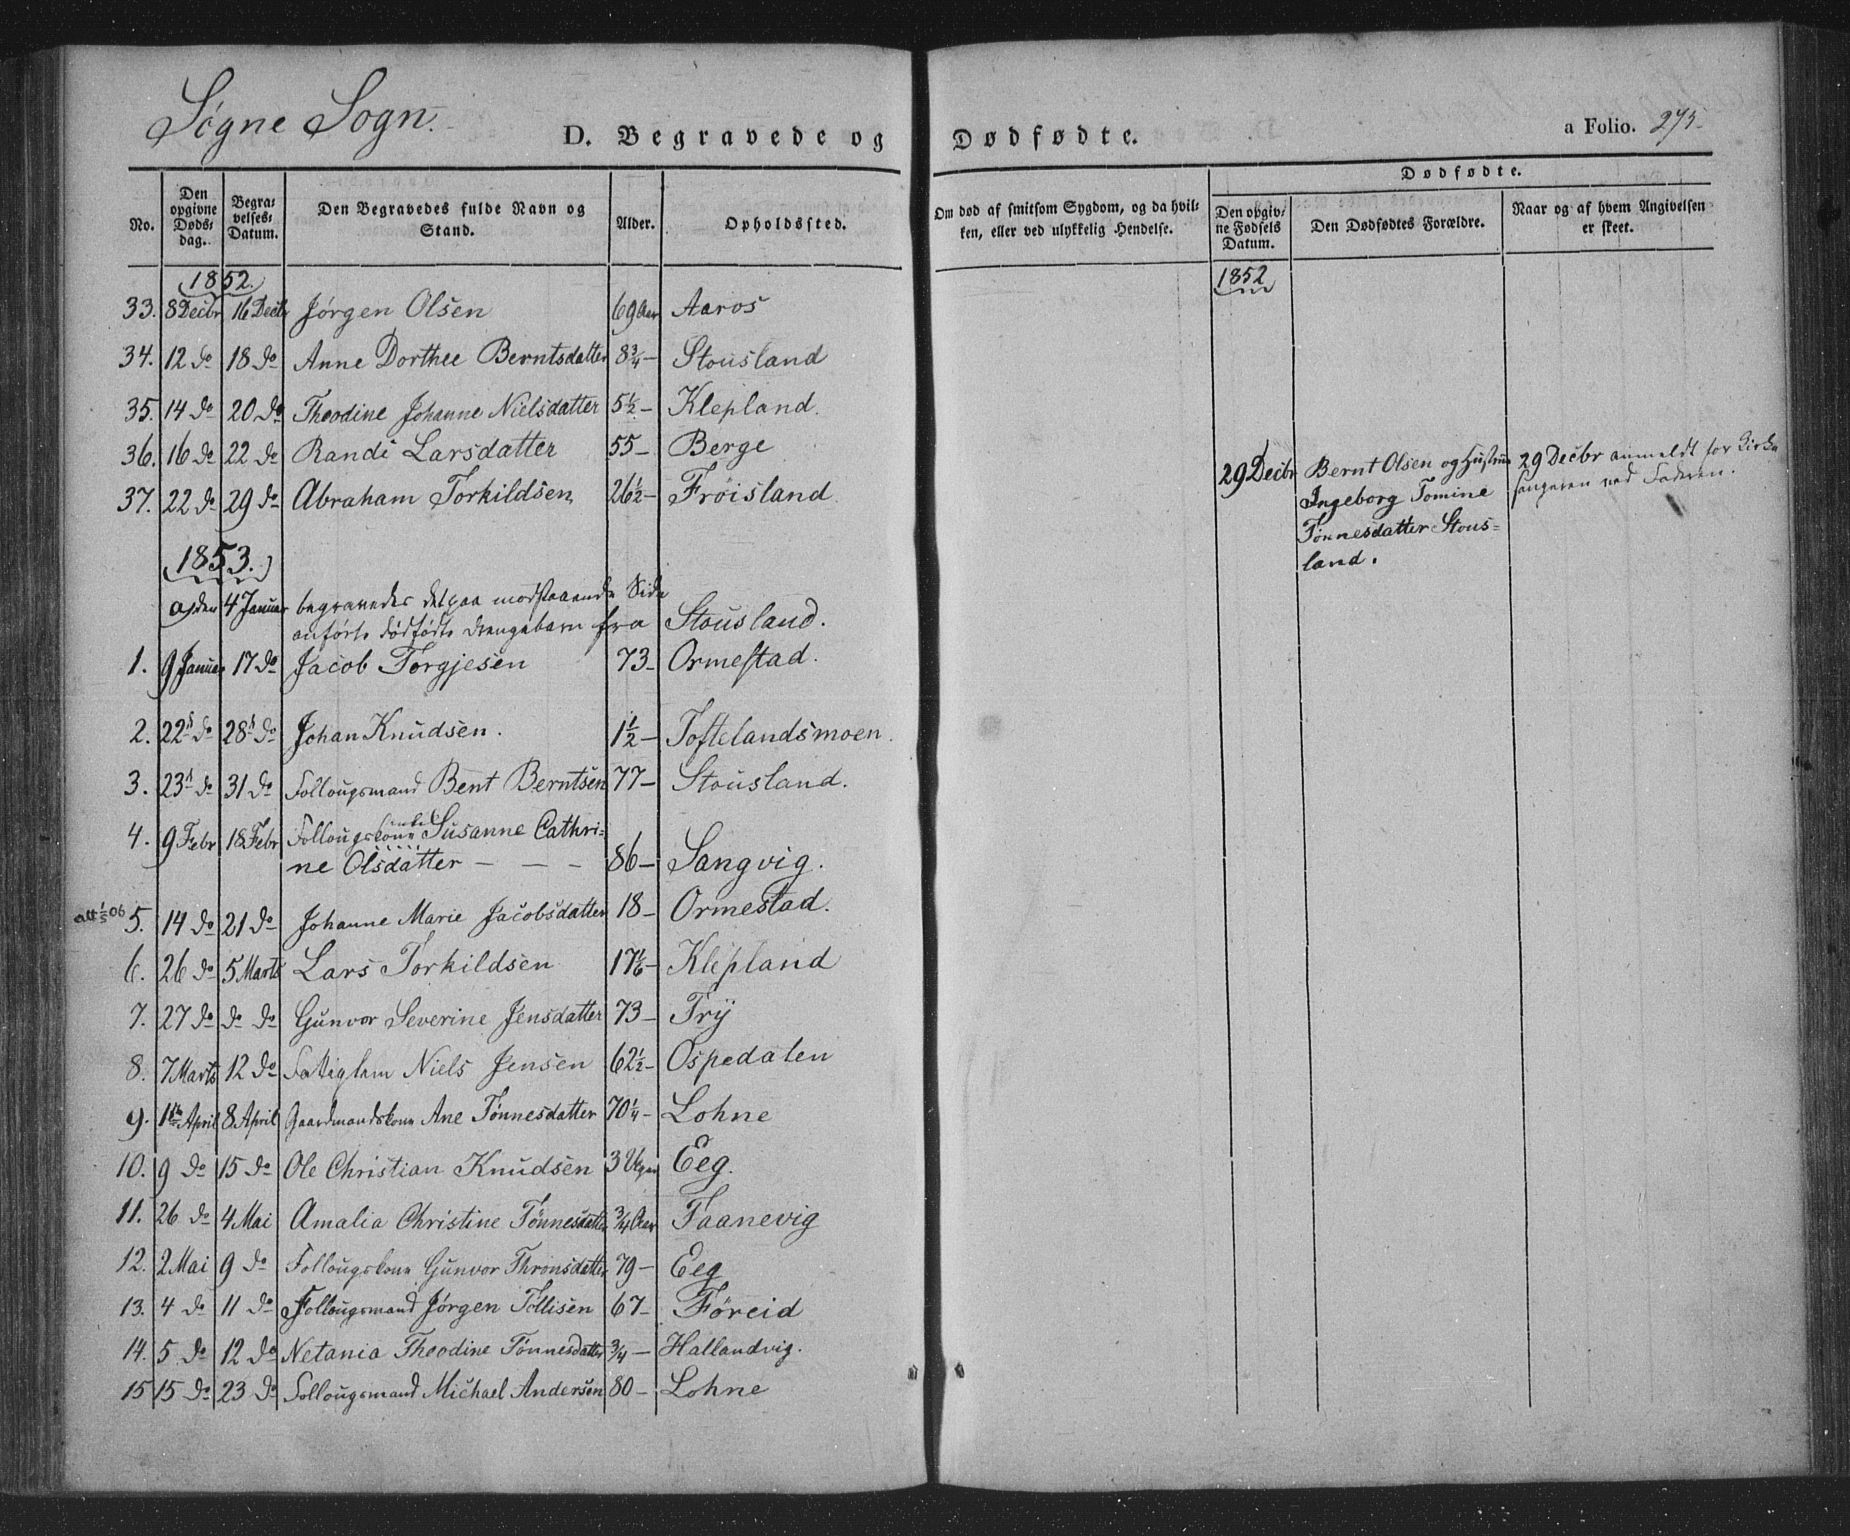 Søgne Sogn.
D. Begravede og Dødfødte.
a Folio. 275.
No. | Den opgivne Døds- dag. | Begra- velses- Datum. | Den Begravedes fulde Navn og Stand. | Alder. | Opholdssted. | Om død af smitsom Sygdom, og da hvil- ken, eller ved ulykkelig Hendelse.
Dødfødte.
Den opgiv- ne Fødsels Datum. | Den Dødfødtes Forældre. | Naar og af hvem Angivelsen er skeet.
1852.
33. 8 Decbr 16 Decbr Jørgen Olsen 69 Aar Aaros
34. 12 do 18 do Anne Dorthee Berntsdatter 8¾ – Stousland
35. 14 do 20 do Theodine Johanne Nielsdatter 5½ – Klepland.
36. 16 do 22 do Randi Larsdatter 55 – Berge
37. 22 do 29 do Abraham Torkildsen 26½ – Frøisland
1853.
a) den 4 Januar begravedes det paa modstaaende Side
anførte dødfødte Drengebarn fra Stousland.
1. 9 Januar 17 do Jacob Torgjesen 73 – Ormestad.
2. 22 do 28 do Johan Knudsen. 1½ – Toftelandsmoen.
3. 23 do 31 do Follougsmand Bent Berntsen 77 – Stousland.
4. 9 Febr 18 Febr Follougskone Susanne Cathri-
ne Olsdatter – – – 86 – Sangvig.
att 1/5 06 5. 14 do 21 do Johanne Marie Jacobsdatter 18 – Ormestad.
6. 26 do 5 Marts Lars Torkildsen 17⅙ – Klepland
7. 27 do do do Gunvor Severine Jensdatter 73 – Try
8. 7 Marts 12 do Fattiglem Niels Jensen 62½ – Ospedalen
9. 1ste April 8 April Gaardmandskone Ane Tønnesdatter 70¼ – Lohne
10. 9 do 15 do Ole Christian Knudsen 3 Uger Eeg.
11. 26 do 4 Mai Amalia Christine Tønnesdatter ¾ Aar Faanevig
12. 2 Mai 9 do Follougskone Gunvor Thronsdatter 79 – Eeg
13. 4 do 11 do Follougsmand Jørgen Tollisen 67 – Føreid
14. 5 do 12 do Netania Theodine Tønnesdatter ¾ – Hallandvig.
15 15 do 23 do Follougsmand Michael Andersen 80 – Lohne
1852
29 Decbr Bernt Olsen og Hustrue 29 Decbr anmeldt for Kirke
Ingeborg Tomine sangeren ved Faderen.
Tønnesdatter Stous-
land.